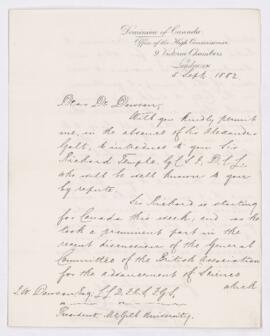 Dominion of Canada
Office of the High Commissioner
9 Victoria Chambers
London SW
5 Sept 1882
Dear Dr Dawson,
Will you kindly permit
me, in the absence of Sir Alexander
Galt, to introduce to you Sir
Richard Temple, G.C.S.I., D.C.L.,
who will be well known to you
by repute.
Sir Richard is starting
for Canada this week, and as he
took a prominent part in the
recent discussions of the General
Committee of the British Association
for the advancement of Science
which
J. W. Dawson Esq. LL.D. F.R.S. F.G.S.
President McGill University